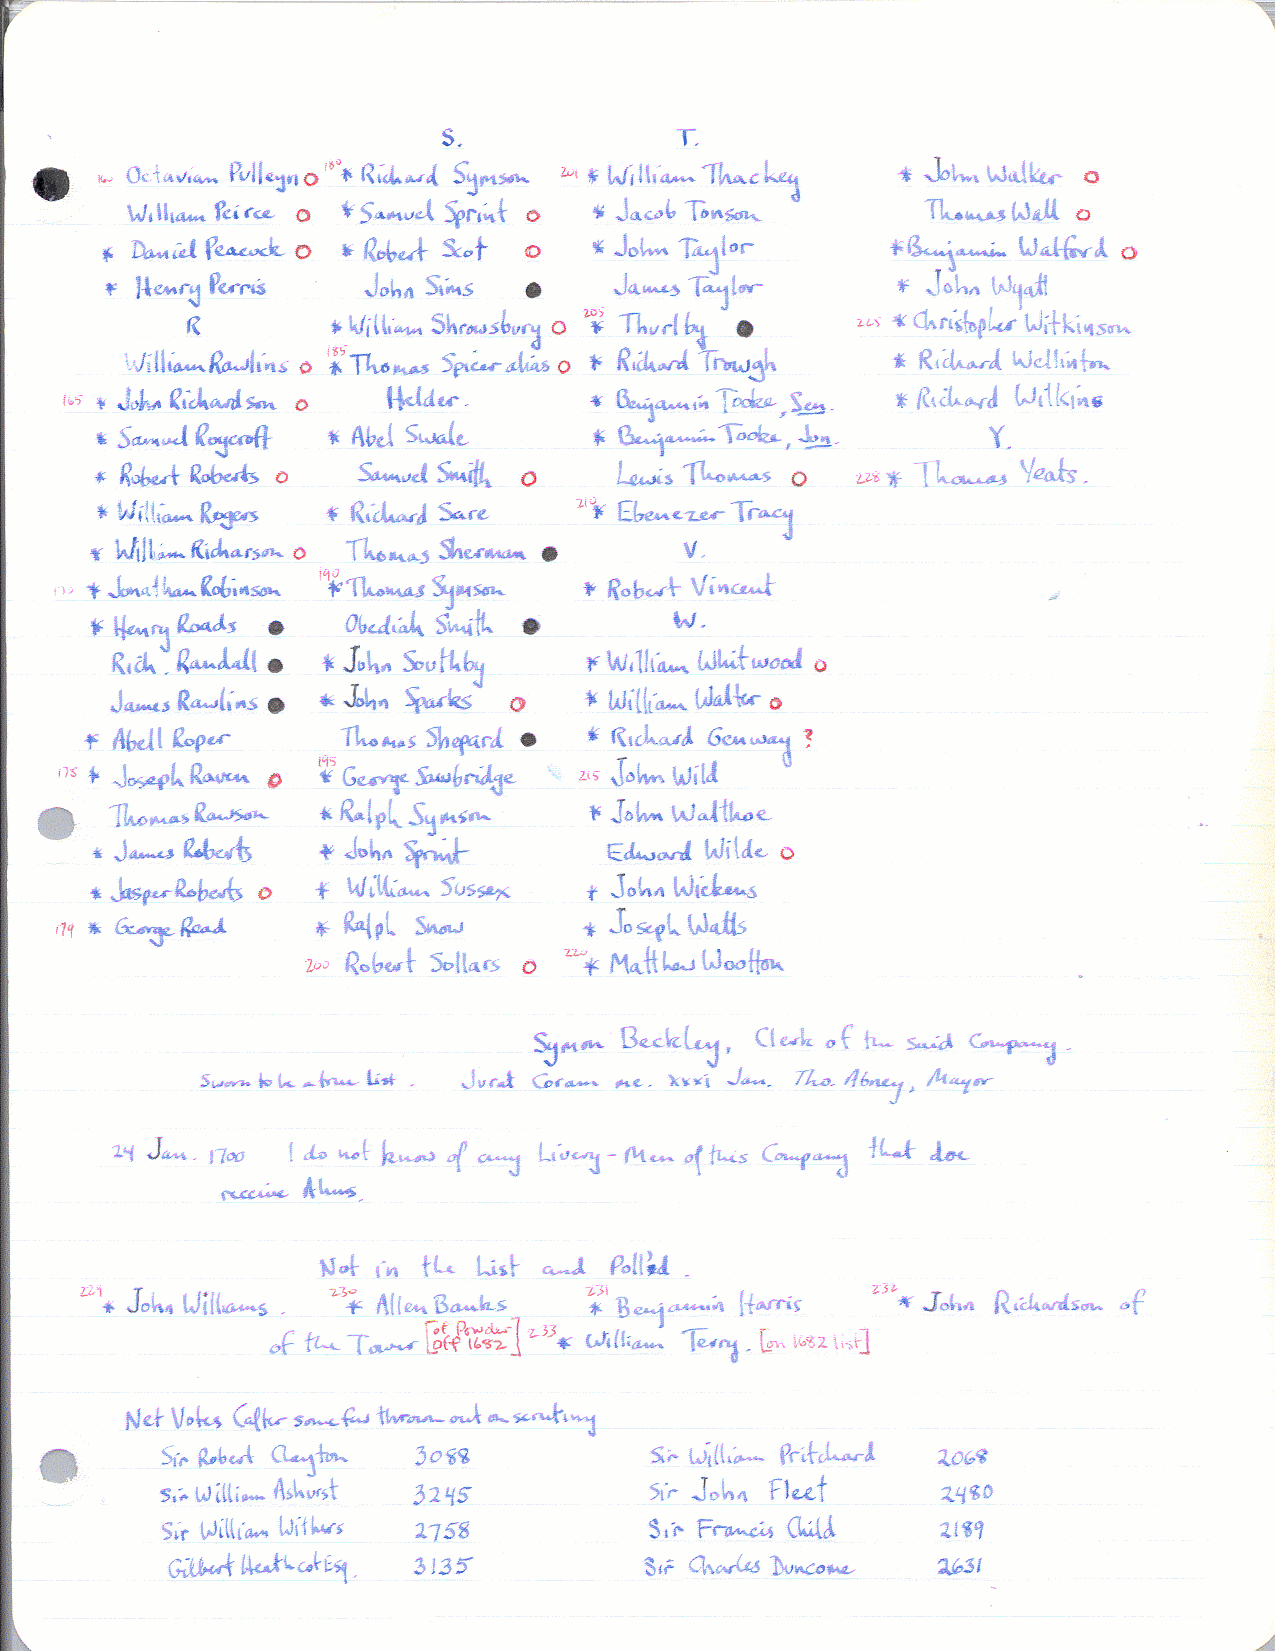 S. T.
160 Octavian Pulleyn o 180 * Richard Symson 201 * William Thackey * John Walker o
William Peirce o * Samuel Sprint o * Jacob Tonson Thomas Wall o
* Daniel Peacock o * Robert Scot o * John Taylor * Benjamin Walford o
* Henry Perris John Sims ● James Taylor * John Wyatt
R * William Shrowsbury o 205 * Thurlby ● 225 * Christopher Witkinson
William Rawlins o 185 * Thomas Spicer alias o * Richard Trough * Richard Wellinton
165 * John Richardson o Helder. * Benjamin Tooke, Sen. * Richard Wilkins
* Samuel Roycroft * Abel Swale * Benjamin Tooke, Jon. Y.
* Robert Roberts o Samuel Smith o Lewis Thomas o 228 * Thomas Yeats.
* William Rogers * Richard Sare 210 * Ebenezer Tracy
* William Richarson o Thomas Sherman ● V.
170 * Jonathan Robinson 190 * Thomas Symson * Robert Vincent
* Henry Roads ● Obediah Smith ● W.
Rich. Randall ● * John Southby * William Whitwood o
James Rawlins ● * John Sparks o * William Walter o
* Abell Roper Thomas Shepard ● * Richard Genway ?
175 * Joseph Raven o 195 * George Sawbridge 215 John Wild
Thomas Rawson * Ralph Symson * John Walthoe
* James Roberts * John Sprint Edward Wilde o
* Jasper Roberts o * William Sussex * John Wickens
179 * George Read * Ralph Snow * Joseph Watts
200 Robert Sollars o 220 * Matthew Wootton
Symon Beckley, Clerk of the said Company.
Sworn to be a true List. Jurat Coram me. xxxi Jan. Tho. Abney, Mayor
24 Jan. 1700 I do not know of any Livery-Men of this Company that doe
receive Alms.
Not in the List and Poll'd.
229 * John Williams. 230 * Allen Banks 231 * Benjamin Harris 232 * John Richardson of
of the Tower [of Powder Off 1682] 233 * William Terry. [on 1682 list]
Net Votes (after some few thrown out on scrutiny
Sir Robert Clayton 3088 Sir William Pritchard 2068
Sir William Ashurst 3245 Sir John Fleet 2480
Sir William Withers 2758 Sir Francis Child 2189
Gilbert Heathcot Esq. 3135 Sir Charles Duncome 2631